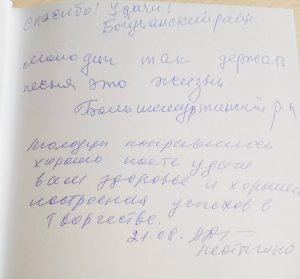 Спасибо! Удачи!
Богучанский район.
Молодцы так держать
песня это жизнь
Большемуртинский р-н
Молодцы понравилось
хорошо поете удачи
вам здоровье и хорошей
настроения успехов в
творчестве.
21.08.